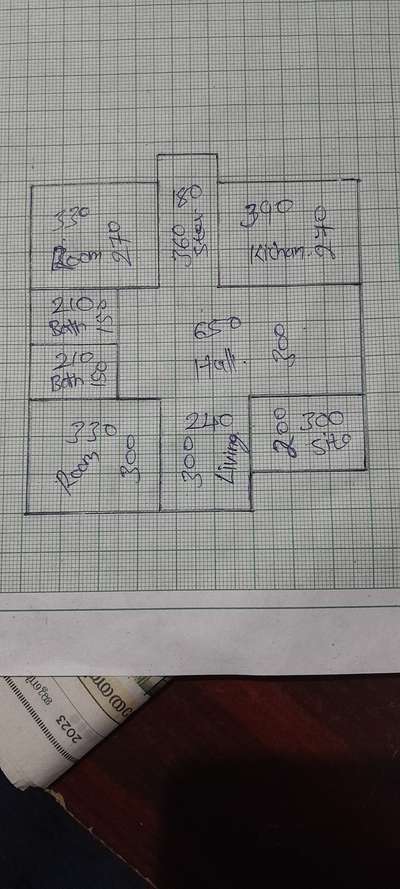 330
Room 270
180
360
Stair
390
Kichan. 270
210
Bath 150
210
Bath 150
650
Hall. 300
330
Room 300
240
300
Living
300
200
Sito
2023